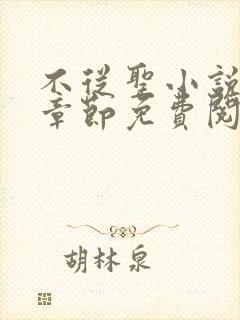 不從聖小說
章節免費閱
胡林泉